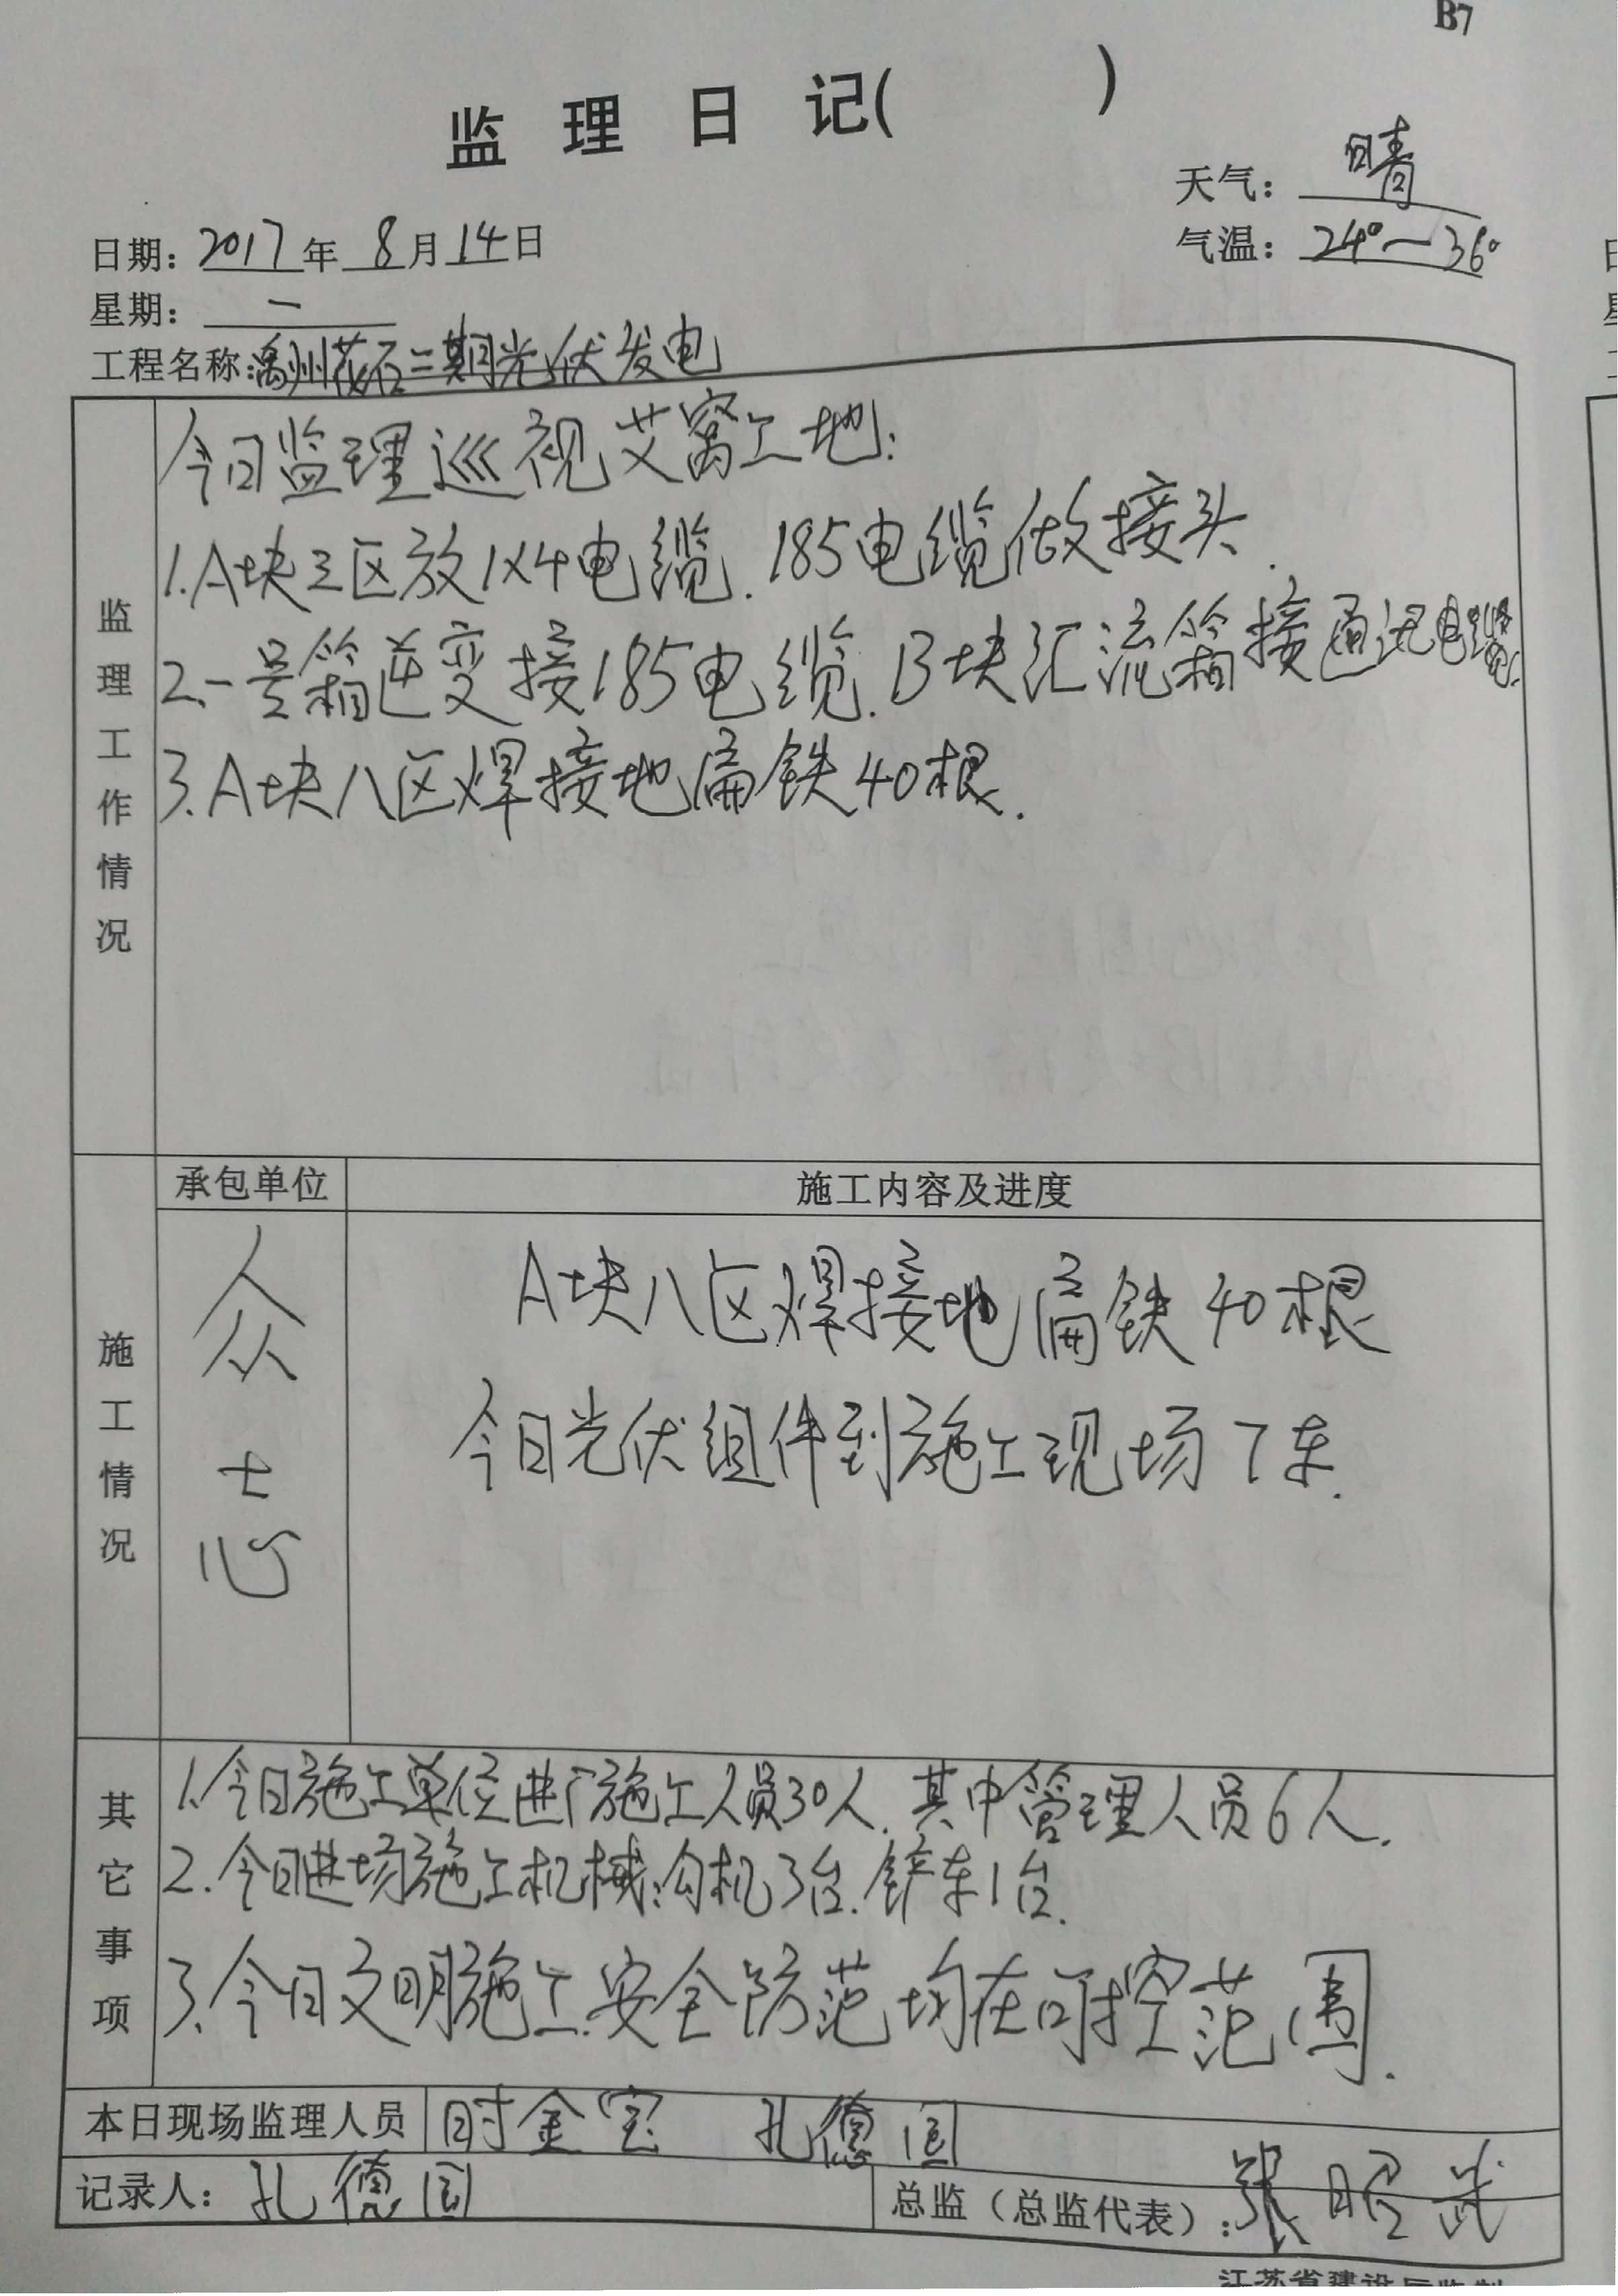 B7
监 理 日 记( )
天气: 晴
日期: 2017年 8月14日
气温: 24°—36°
星期: 一
工程名称:禹州花石二期光伏发电
监理工作情况
今日监理巡视艾窝工地:
1.A块三区放1X4电缆.185电缆做接头.
2.一号箱逆变接185电缆.B块汇流箱接通讯电缆.
3.A块八区焊接地扁铁40根.
承包单位
施工内容及进度
施工情况
众志
A块八区焊接地扁铁40根
今日光伏组件到施工现场7车.
其它事项
1.今日施工单位进厂施工人员30人.其中管理人员6人.
2.今日进场施工机械:勾机3台.铲车1台.
3.今日文明施工.安全防范均在可控范围.
本日现场监理人员 时金宝 孔德国
记录人: 孔德国
总监(总监代表):张昭武